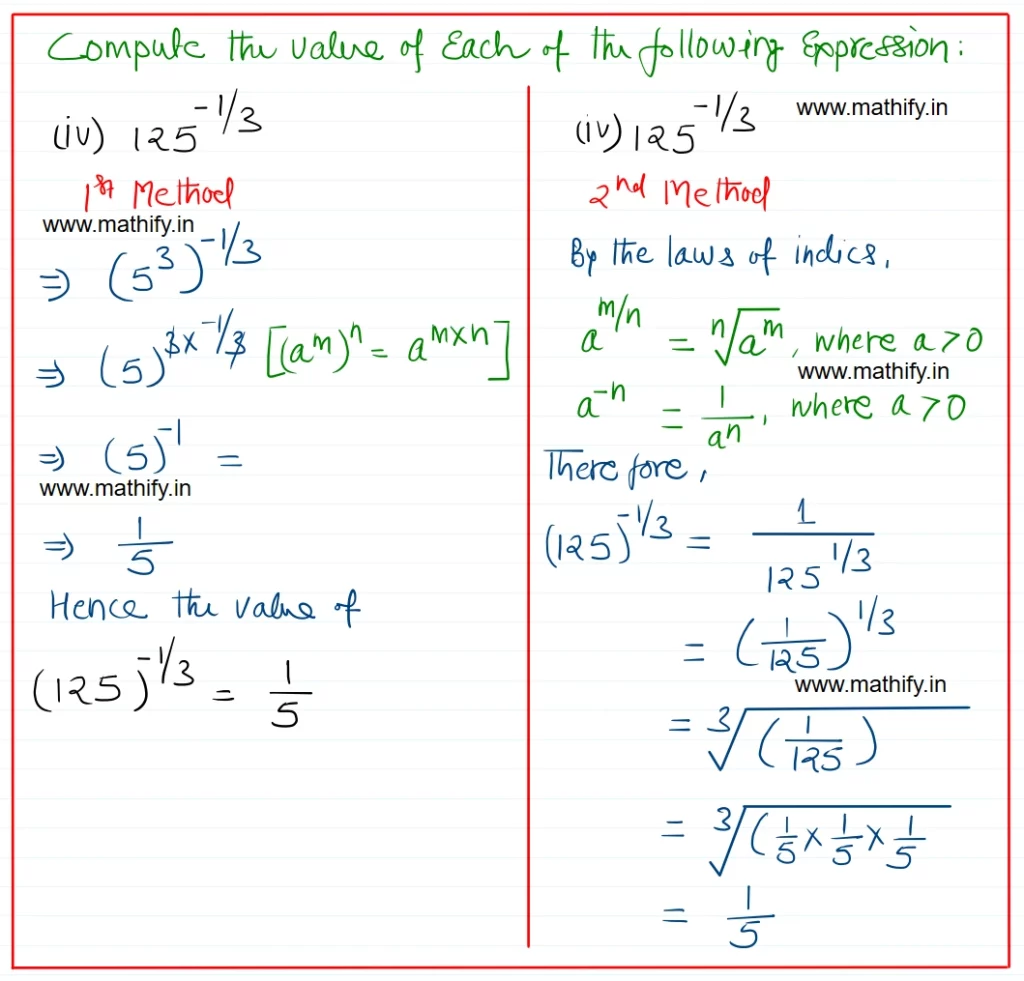 Compute the value of Each of the following Expression:
(iv) 125^{-1/3}
1st Method
www.mathify.in
⇒ (5^3)^{-1/3}
⇒ (5)^{3×-1/3} [(a^m)^n = a^{m×n}]
⇒ (5)^{-1} =
www.mathify.in
⇒ 1/5
Hence the value of
(125)^{-1/3} = 1/5
(iv) 125^{-1/3} www.mathify.in
2nd Method
By the laws of indics,
a^{m/n} = ⁿ√(a^m), where a>0
www.mathify.in
a^{-n} = 1/a^n, where a>0
Therefore,
(125)^{-1/3} = 1/125^{1/3}
= (1/125)^{1/3}
www.mathify.in
= ³√(1/125)
= ³√(1/5 × 1/5 × 1/5
= 1/5